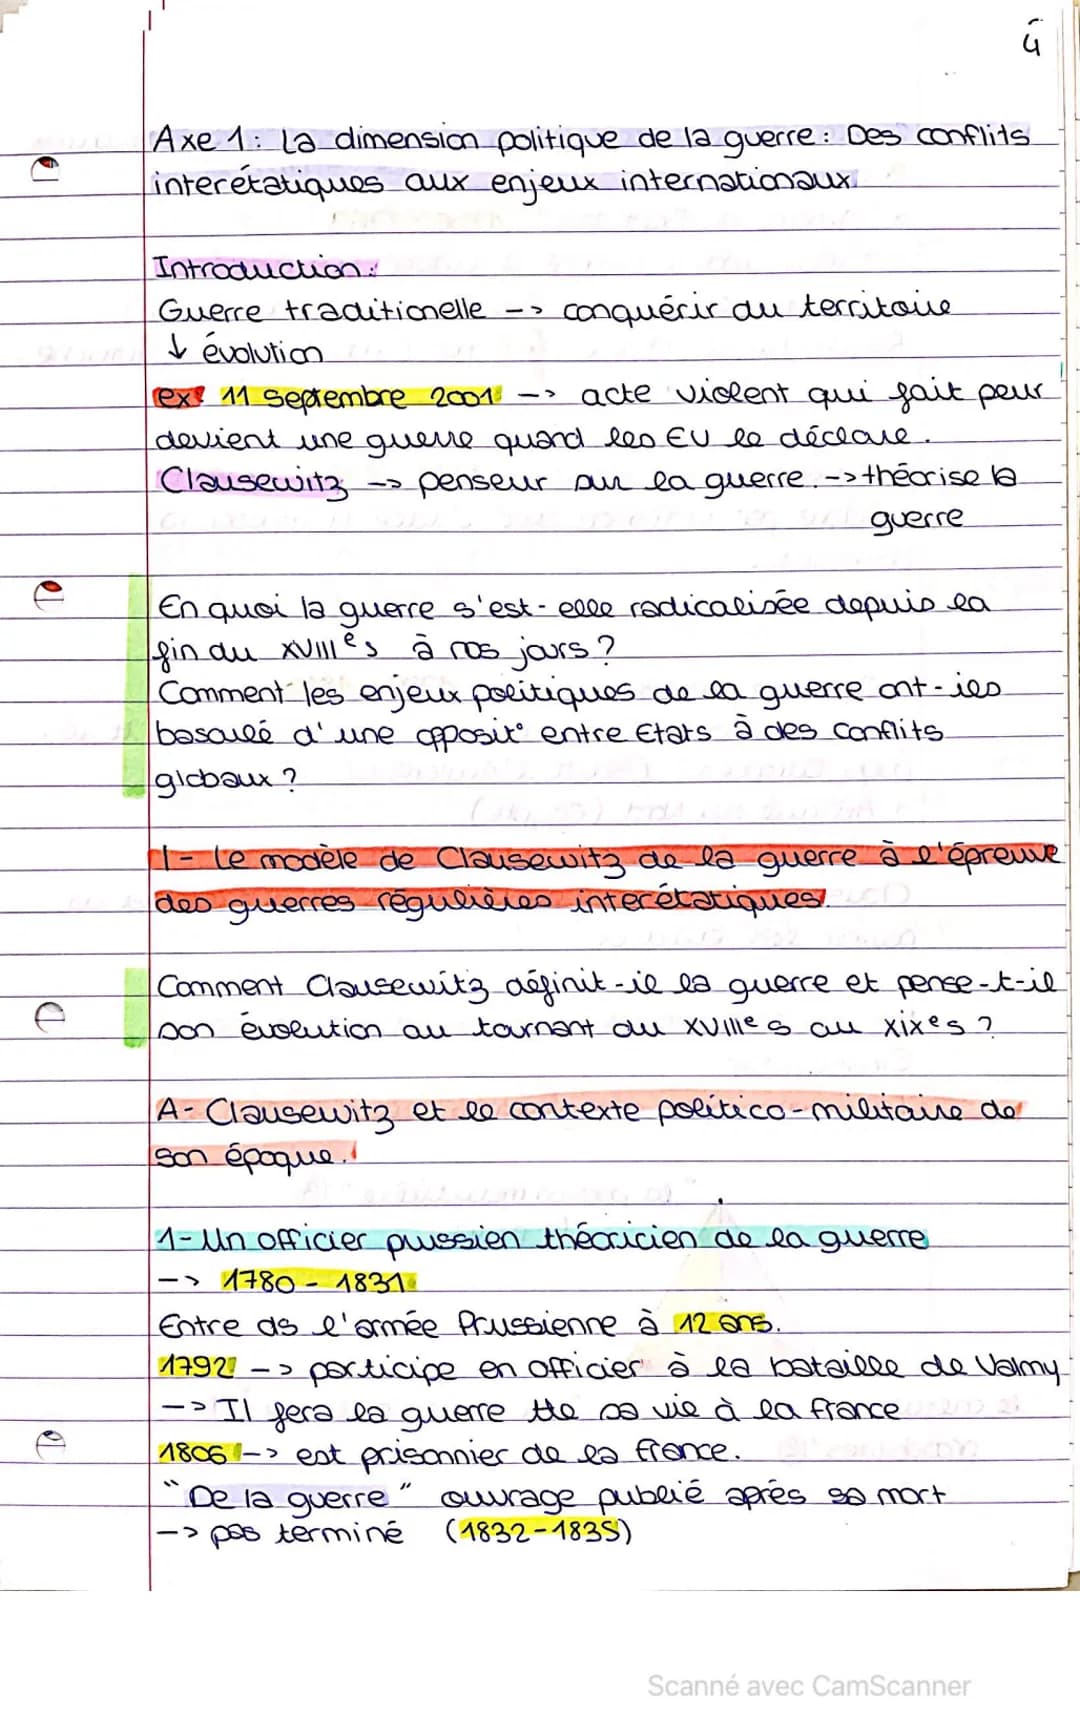 4
Axe 1: La dimension politique de la guerre : Des conflits
interétatiques aux enjeux internationaux.
Introduction :
Guerre traditionelle --> conquérir du territoire
↓ évolution
ex: 11 septembre 2001 --> acte violent qui fait peur
devient une guerre quand les EU le déclare.
Clausewitz --> penseur sur la guerre. --> théorise la
guerre
En quoi la guerre s'est-elle radicalisée depuis la
fin du XVIIIe s à nos jours ?
Comment les enjeux politiques de la guerre ont-ils
basculé d'une opposit° entre Etats à des conflits
globaux ?
I- Le modèle de Clausewitz de la guerre à l'épreuve
des guerres régulières interétatiques.
Comment Clausewitz définit-il la guerre et pense-t-il
son évolution au tournant du XVIIIe s au XIXe s ?
A- Clausewitz et le contexte politico-militaire de
son époque.
1- Un officier prussien théoricien de la guerre
--> 1780 - 1831
Entre ds l'armée Prussienne à 12 ans.
1792 --> participe en officier à la bataille de Valmy
--> Il fera la guerre tte sa vie à la france
1806 --> est prisonnier de la france.
"De la guerre" ouvrage publié après sa mort
--> pas terminé (1832-1835)
Scanné avec CamScanner